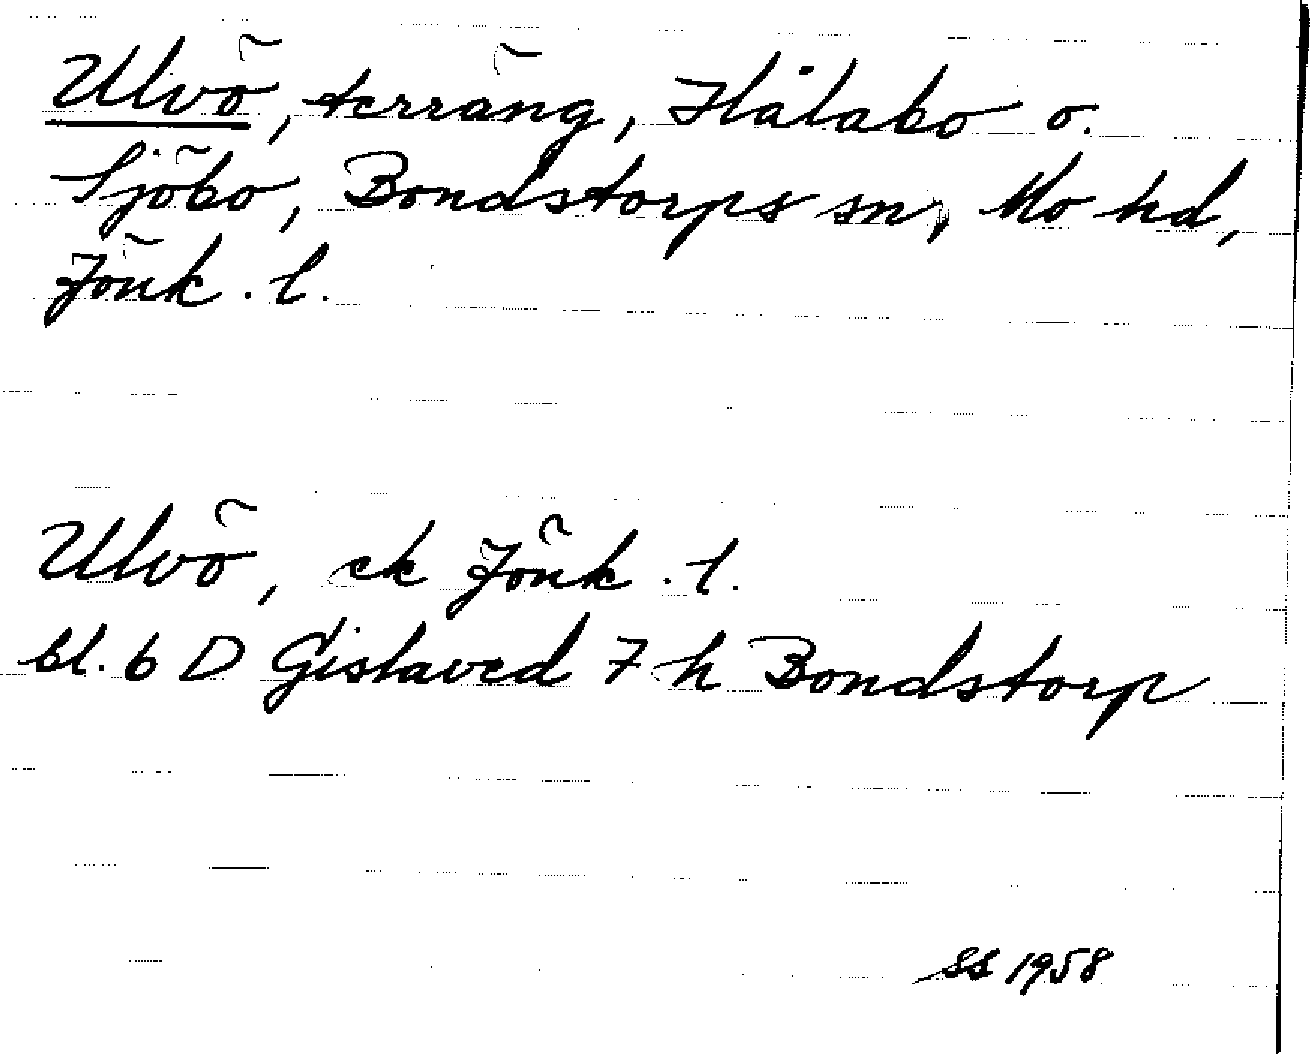 Ulvö, terräng, Flålabo o.
Sjöbo, Bondstorps sn, Mo hd,
Jönk. l.
Ulvö, ek Jönk. l.
bl. 6 D Gislaved 7 h Bondstorp
SS 1958